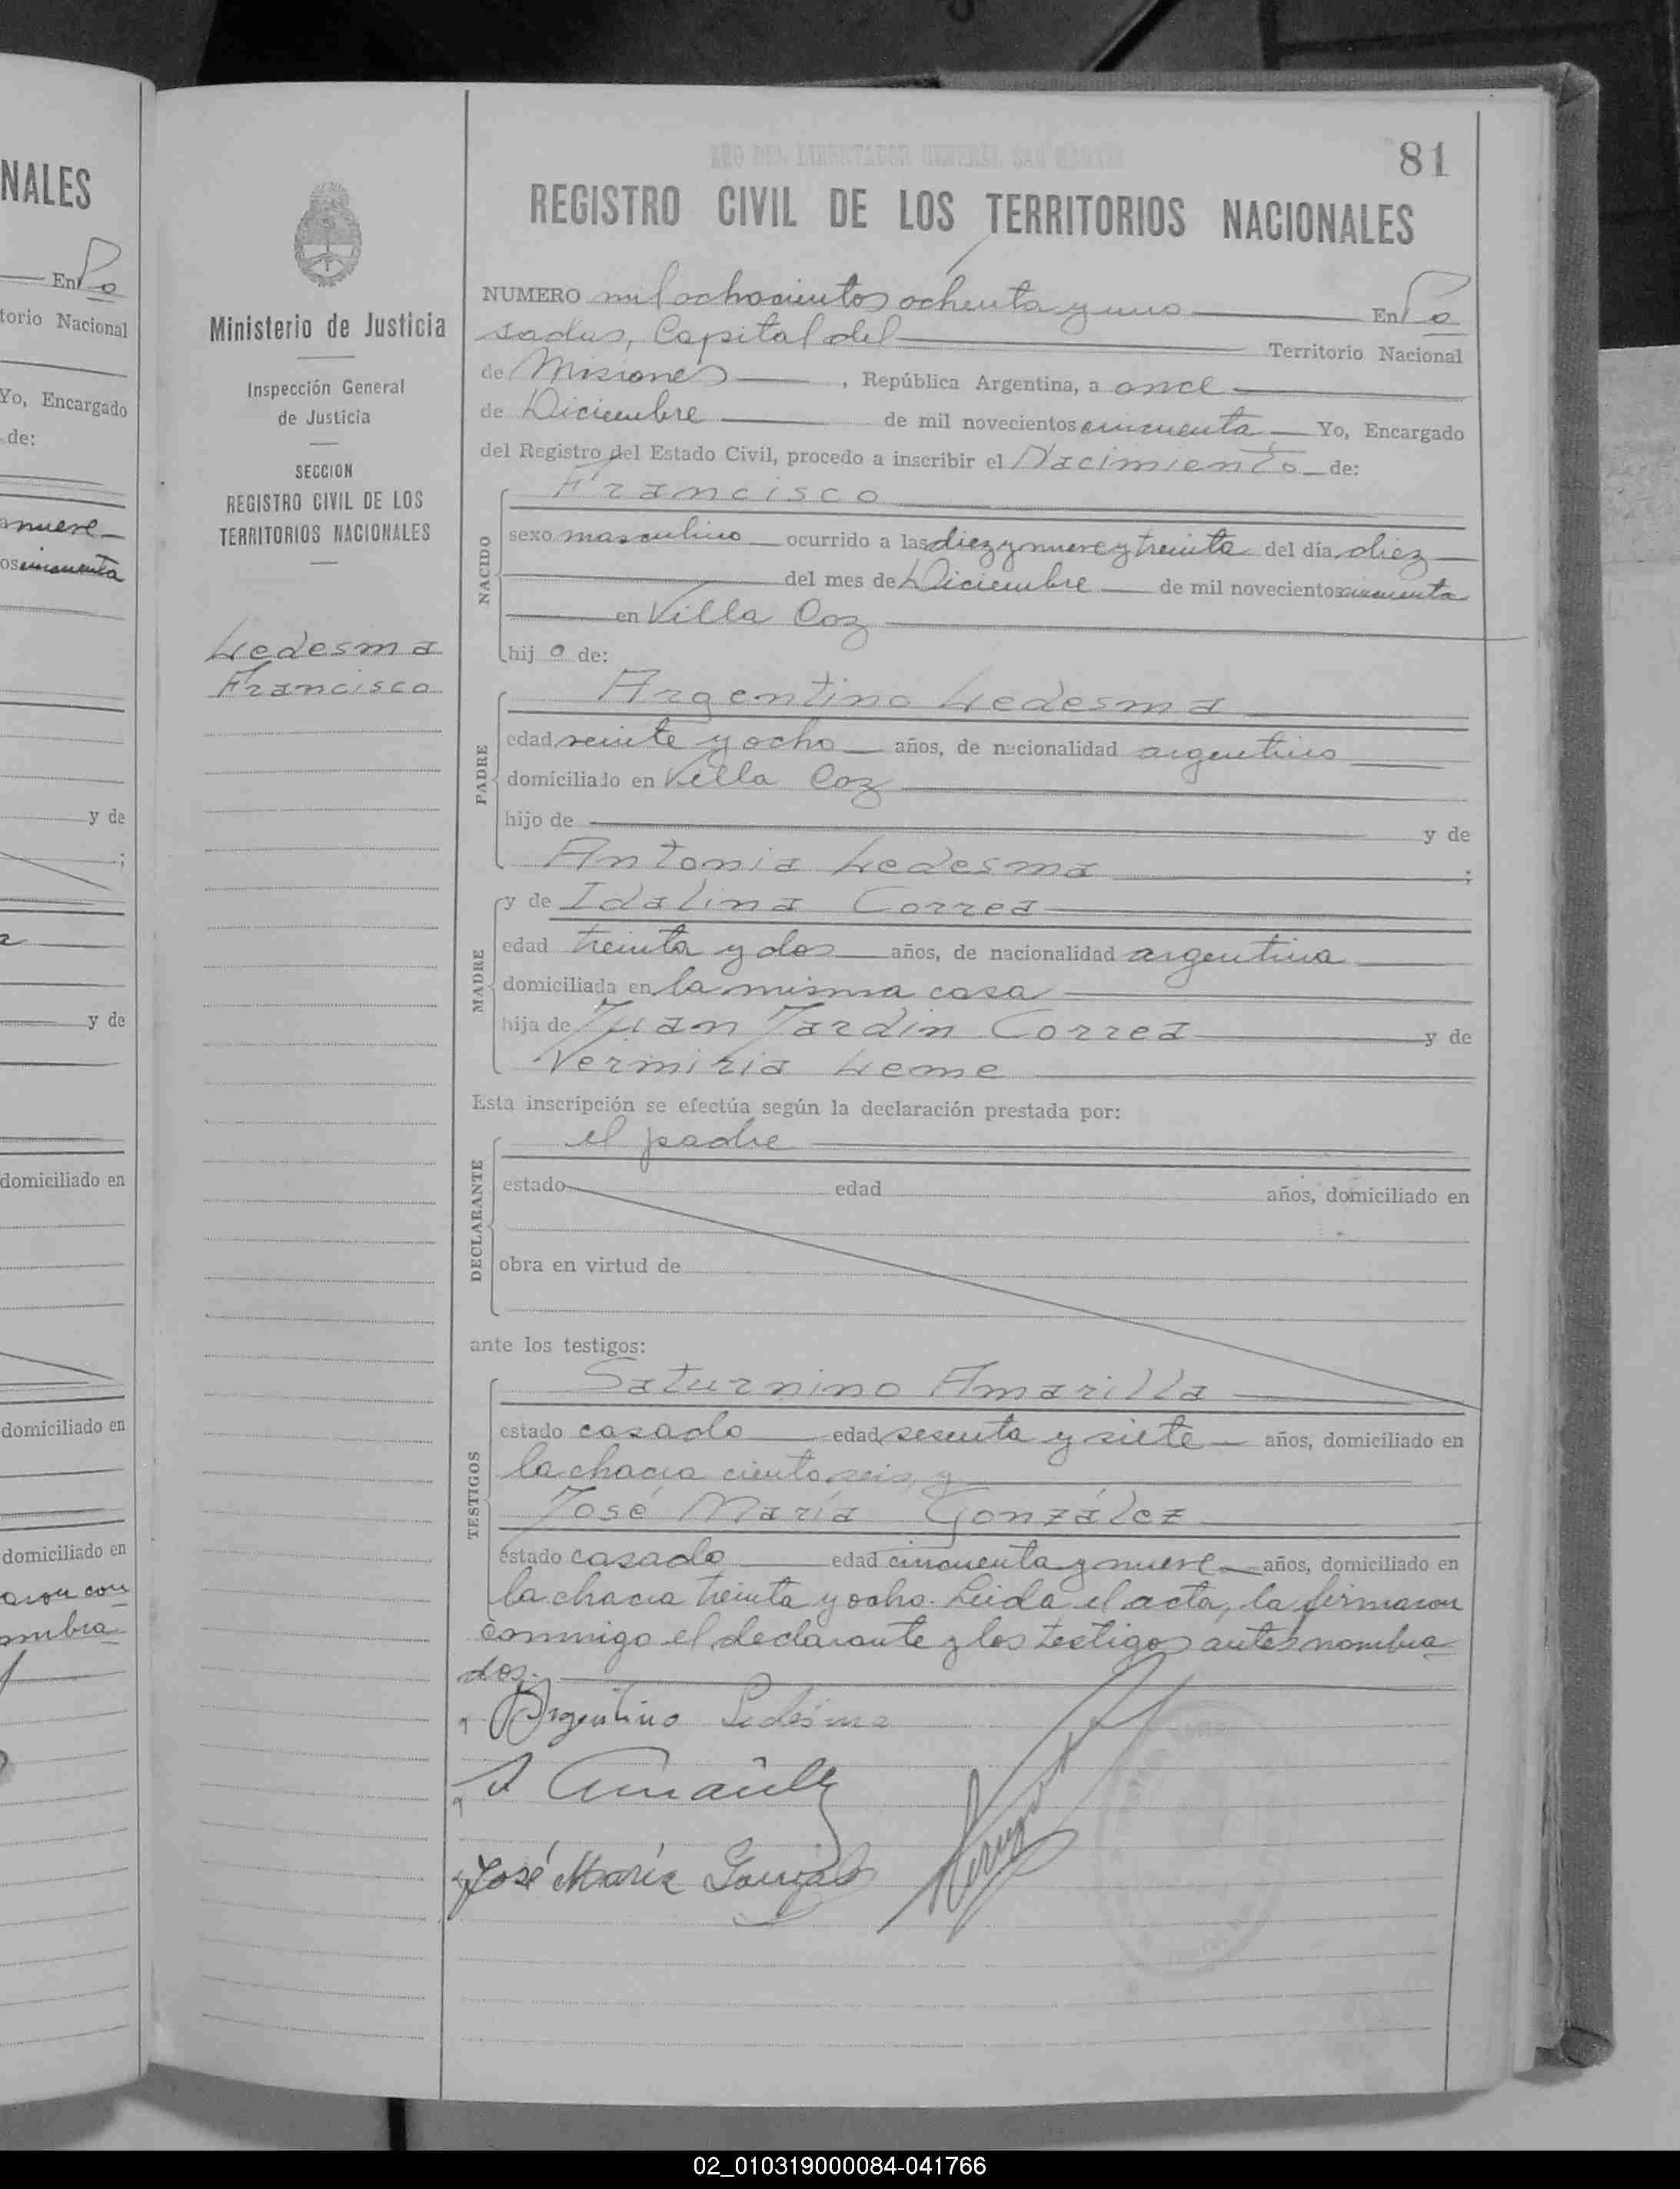 NALES
En Po
torio Nacional
Yo, Encargado
de:
nueve
os cincuenta
y de
y de
domiciliado en
domiciliado en
domiciliado en
aron con
nombra
Ministerio de Justicia
Inspección General
de Justicia
SECCION
REGISTRO CIVIL DE LOS
TERRITORIOS NACIONALES
Ledesma
Francisco
AÑO DEL LIBERTADOR GENERAL SAN MARTIN
81
REGISTRO CIVIL DE LOS TERRITORIOS NACIONALES
NUMERO mil ochocientos ochenta y uno En Po
sadas, Capital del Territorio Nacional
de Misiones, República Argentina, a once
de Diciembre de mil novecientos cincuenta Yo, Encargado
del Registro del Estado Civil, procedo a inscribir el Nacimiento de:
NACIDO
Francisco
sexo masculino ocurrido a las diez y nueve y treinta del día diez
del mes de Diciembre de mil novecientos cincuenta
en Villa Coz
hijo de:
PADRE
Argentino Ledesma
edad veinte y ocho años, de nacionalidad argentino
domiciliado en Villa Coz
hijo de y de
Antonia Ledesma ;
MADRE
y de Idalina Correa
edad treinta y dos años, de nacionalidad argentina
domiciliada en la misma casa
hija de Juan Jardin Correa y de
Vermiria Leme
Esta inscripción se efectúa según la declaración prestada por:
DECLARANTE
el padre
estado edad años, domiciliado en
obra en virtud de
ante los testigos:
TESTIGOS
Saturnino Amarilla
estado casado edad sesenta y siete años, domiciliado en
la chacra ciento seis, y
José María González
estado casado edad cincuenta y nueve años, domiciliado en
la chacra treinta y ocho. Leída el acta, la firmaron
conmigo el declarante y los testigos antes nombra
dos.
Argentino Ledesma
S Amarilla
José María Gonzalez
02_010319000084-041766